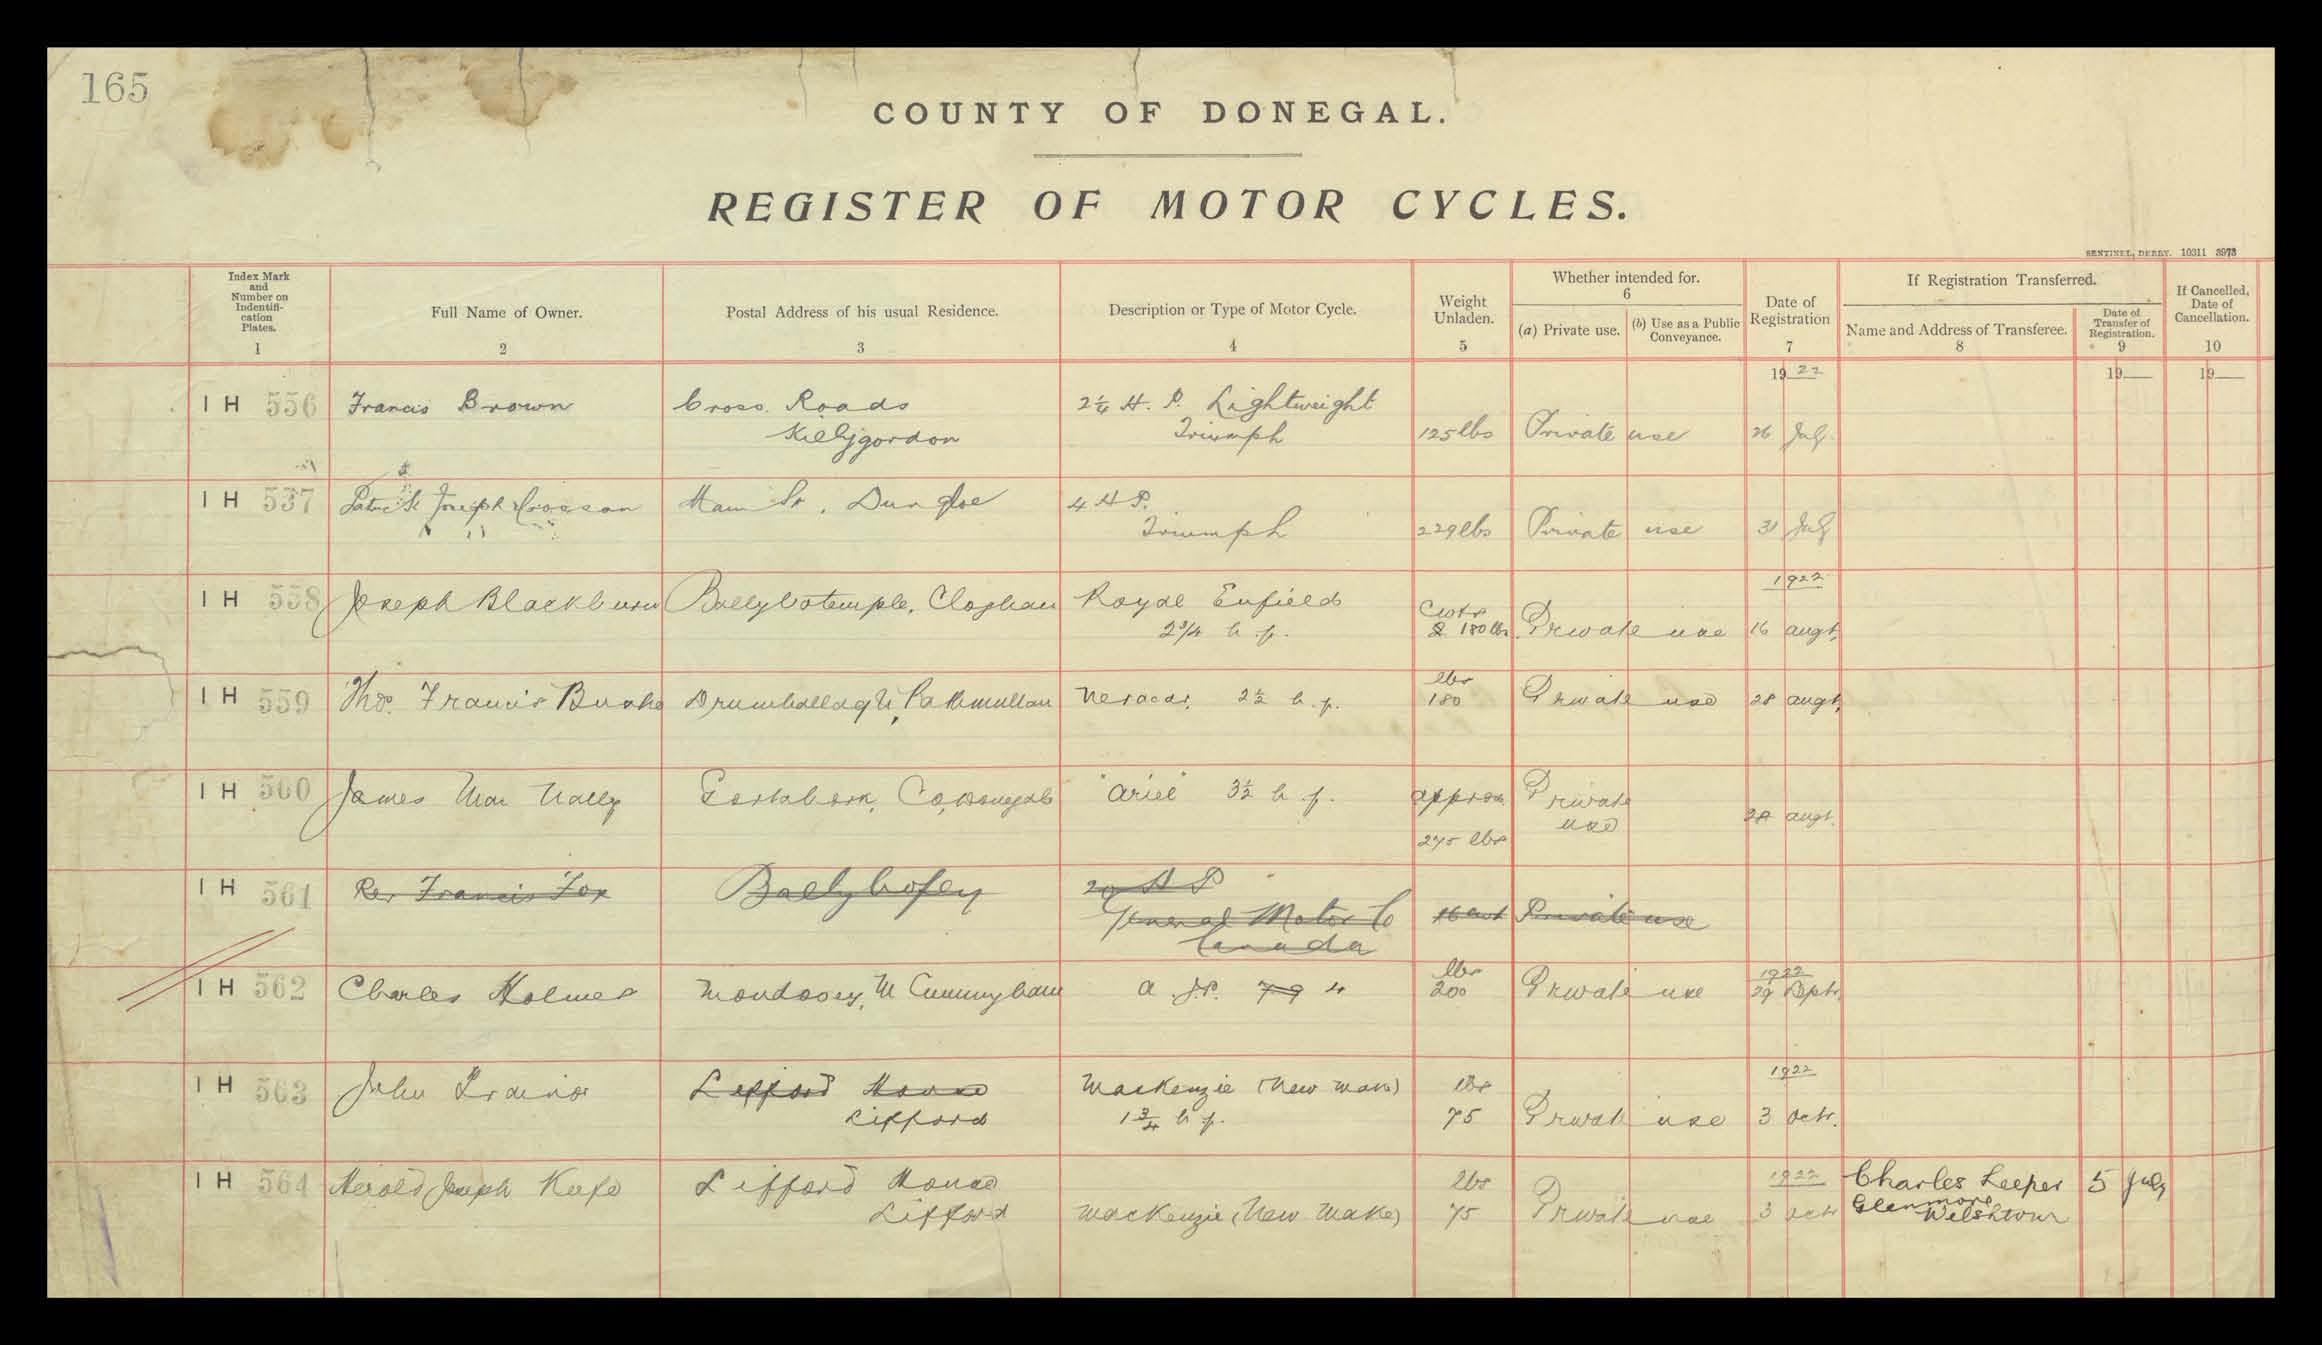 165
COUNTY OF DONEGAL.
REGISTER OF MOTOR CYCLES.
SENTINEL, DERRY. 10311 3973
Index Mark
and
Number on
Indentifi-
cation
Plates.
1
Full Name of Owner.
2
Postal Address of his usual Residence.
3
Description or Type of Motor Cycle.
4
Weight
Unladen.
5
Whether intended for.
6
(a) Private use.
(b) Use as a Public
Conveyance.
Date of
Registration
7
If Registration Transferred.
Name and Address of Transferee.
8
Date of
Transfer of
Registration.
9
If Cancelled,
Date of
Cancellation.
10
1922
19
19
IH 556 Francis Brown Cross Roads 2¼ H.P. Lightweight
Killygordon Triumph 125 lbs Private use 26 July
IH 557 Patrick Joseph Crossan Main St, Dungloe 4 H.P.
Triumph 229 lbs Private use 31 July
1922
IH 558 Joseph Blackburn Ballybotemple, Cloghan Royal Enfield
2¾ h.p. Cwts 2 180 lbs Private use 16 augt,
lbs
IH 559 Thos. Francis Burke Drumhallagh, Rathmullan 2½ h.p. 180 Private use 28 augt,
IH 560 James Mac Nally Gortahork, Co, Donegal "Ariel" 3½ h.p. approx. Private
275 lbs use 28 augt.
IH 561 Rev Francis Fox Ballybofey 20 H P
General Motor Co 16 cwt Private use
Canada
lbs 1922
IH 562 Charles Holmes M Cunningham a .J.S. 7-9 4 200 Private use 29 Septr,
1922
IH 563 John Trainor Lifford House MacKenzie (New Make) lbs
Lifford 1¾ h.p. 75 Private use 3 Octr.
IH 564 Herold Joseph Keefe Lifford House lbs 1922 Charles Leeper 5 July
Lifford MacKenzie (New Make) 75 Private use 3 Octr Glenmore
Welshtown